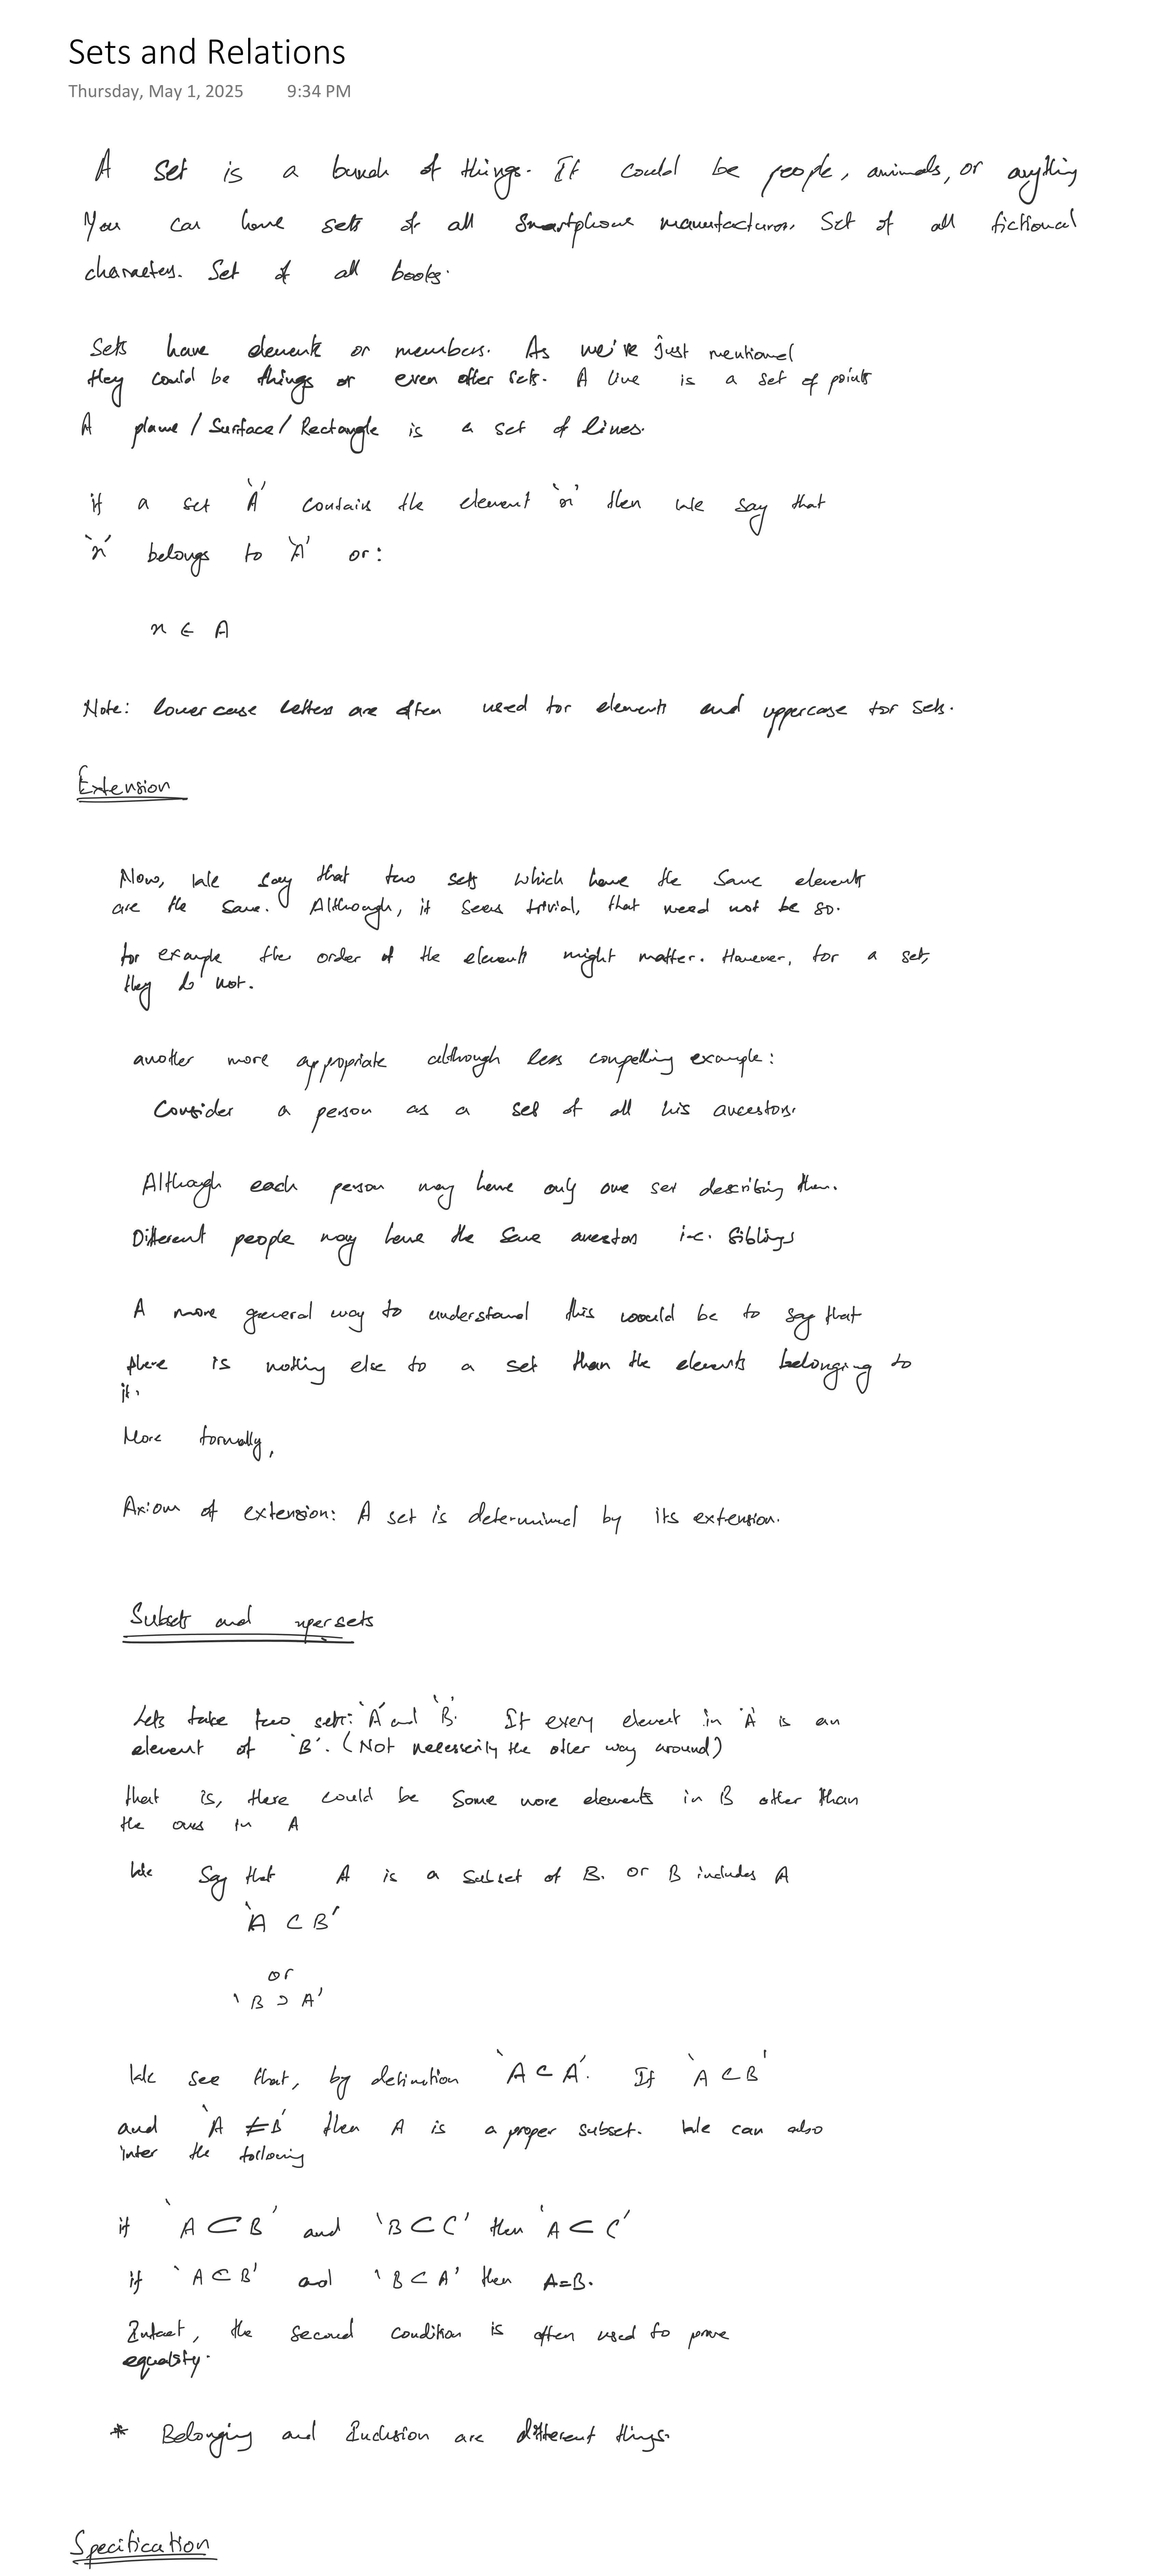 Sets and Relations
Thursday, May 1, 2025 9:34 PM
A set is a bunch of things. It could be people, animals, or anything
You can have sets of all smartphone manufacturers. Set of all fictional
characters. Set of all books.
Sets have elements or members. As we've just mentioned
they could be things or even other sets. A line is a set of points
A plane / Surface / Rectangle is a set of lines.
if a set 'A' contains the element 'x' then we say that
'x' belongs to 'A' or:
x ∈ A
Note: lower case letters are often used for elements and uppercase for sets.
Extension
Now, we say that two sets which have the same elements
are the same. Although, it seems trivial, that need not be so.
for example the order of the elements might matter. However, for a set,
they do not.
another more appropriate although less compelling example:
Consider a person as a set of all his ancestors.
Although each person may have only one set describing them.
Different people may have the same ancestors i.e. siblings
A more general way to understand this would be to say that
there is nothing else to a set than the elements belonging to
it.
More formally,
Axiom of extension: A set is determined by its extension.
Subsets and upersets
Lets take two sets: 'A' and 'B'. If every element in 'A' is an
element of 'B'. (Not necesserily the other way around)
that is, there could be some more elements in B other than
the ones in A
We say that A is a subset of B. or B includes A
'A ⊂ B'
or
'B ⊃ A'
We see that, by definition 'A ⊂ A'. If 'A ⊂ B'
and 'A ≠ B' then A is a proper subset. We can also
infer the following
if 'A ⊂ B' and 'B ⊂ C' then 'A ⊂ C'
if 'A ⊂ B' and 'B ⊂ A' then A=B.
Infact, the second condition is often used to prove
equality.
* Belonging and Inclusion are different things.
Specification